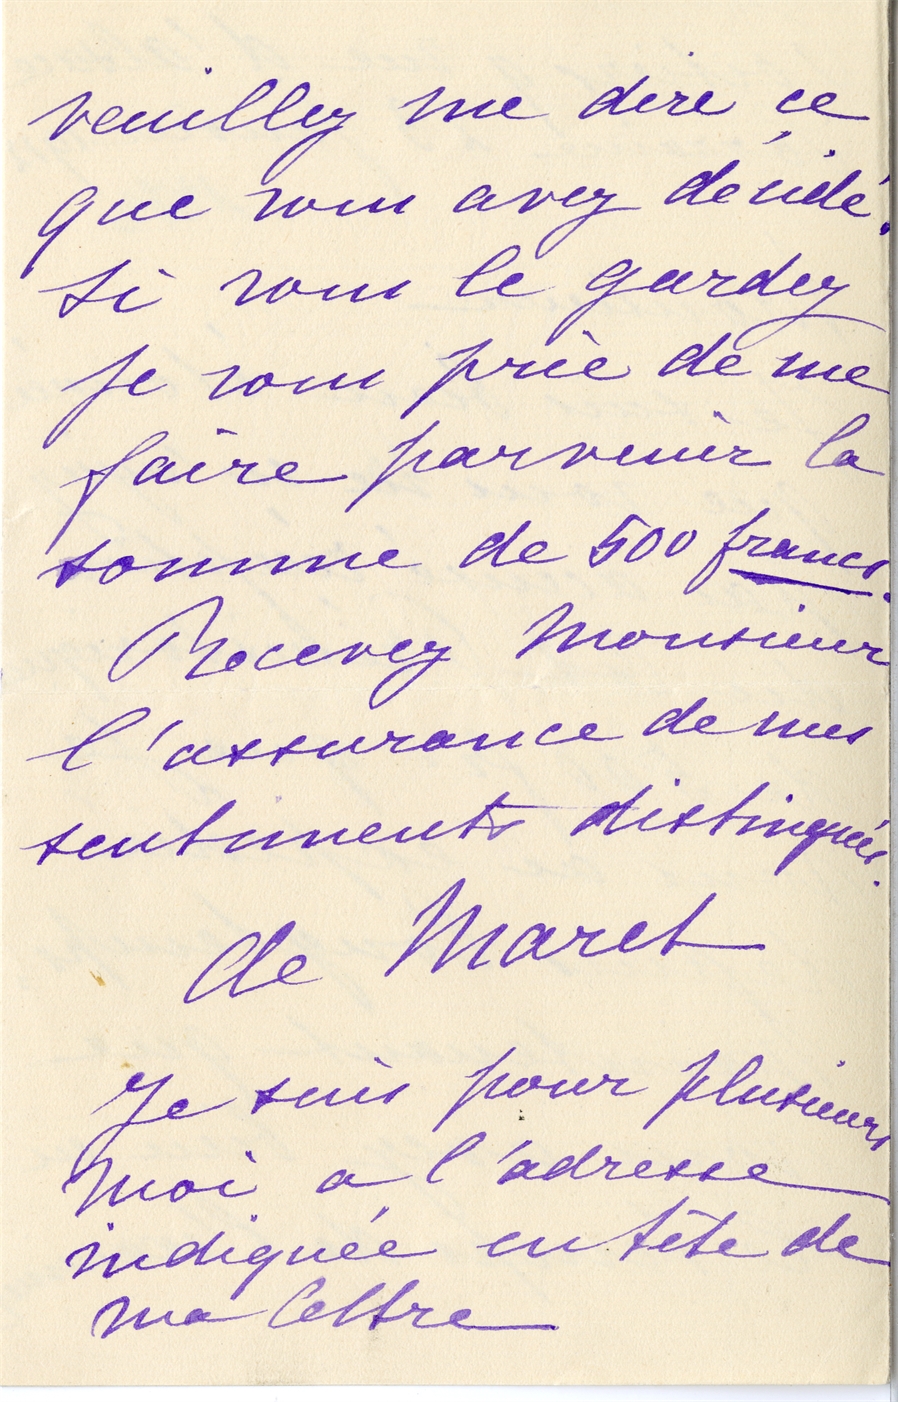 veuillez me dire ce
que vous avez décidé.
si vous le gardez
je vous prie de me
faire parvenir la
somme de 500 francs.
Recevez Monsieur
l'assurance de mes
sentiments distingués.
de Maret
Je suis pour plusieurs
moi a l'adresse
indiquée en tête de
ma lettre